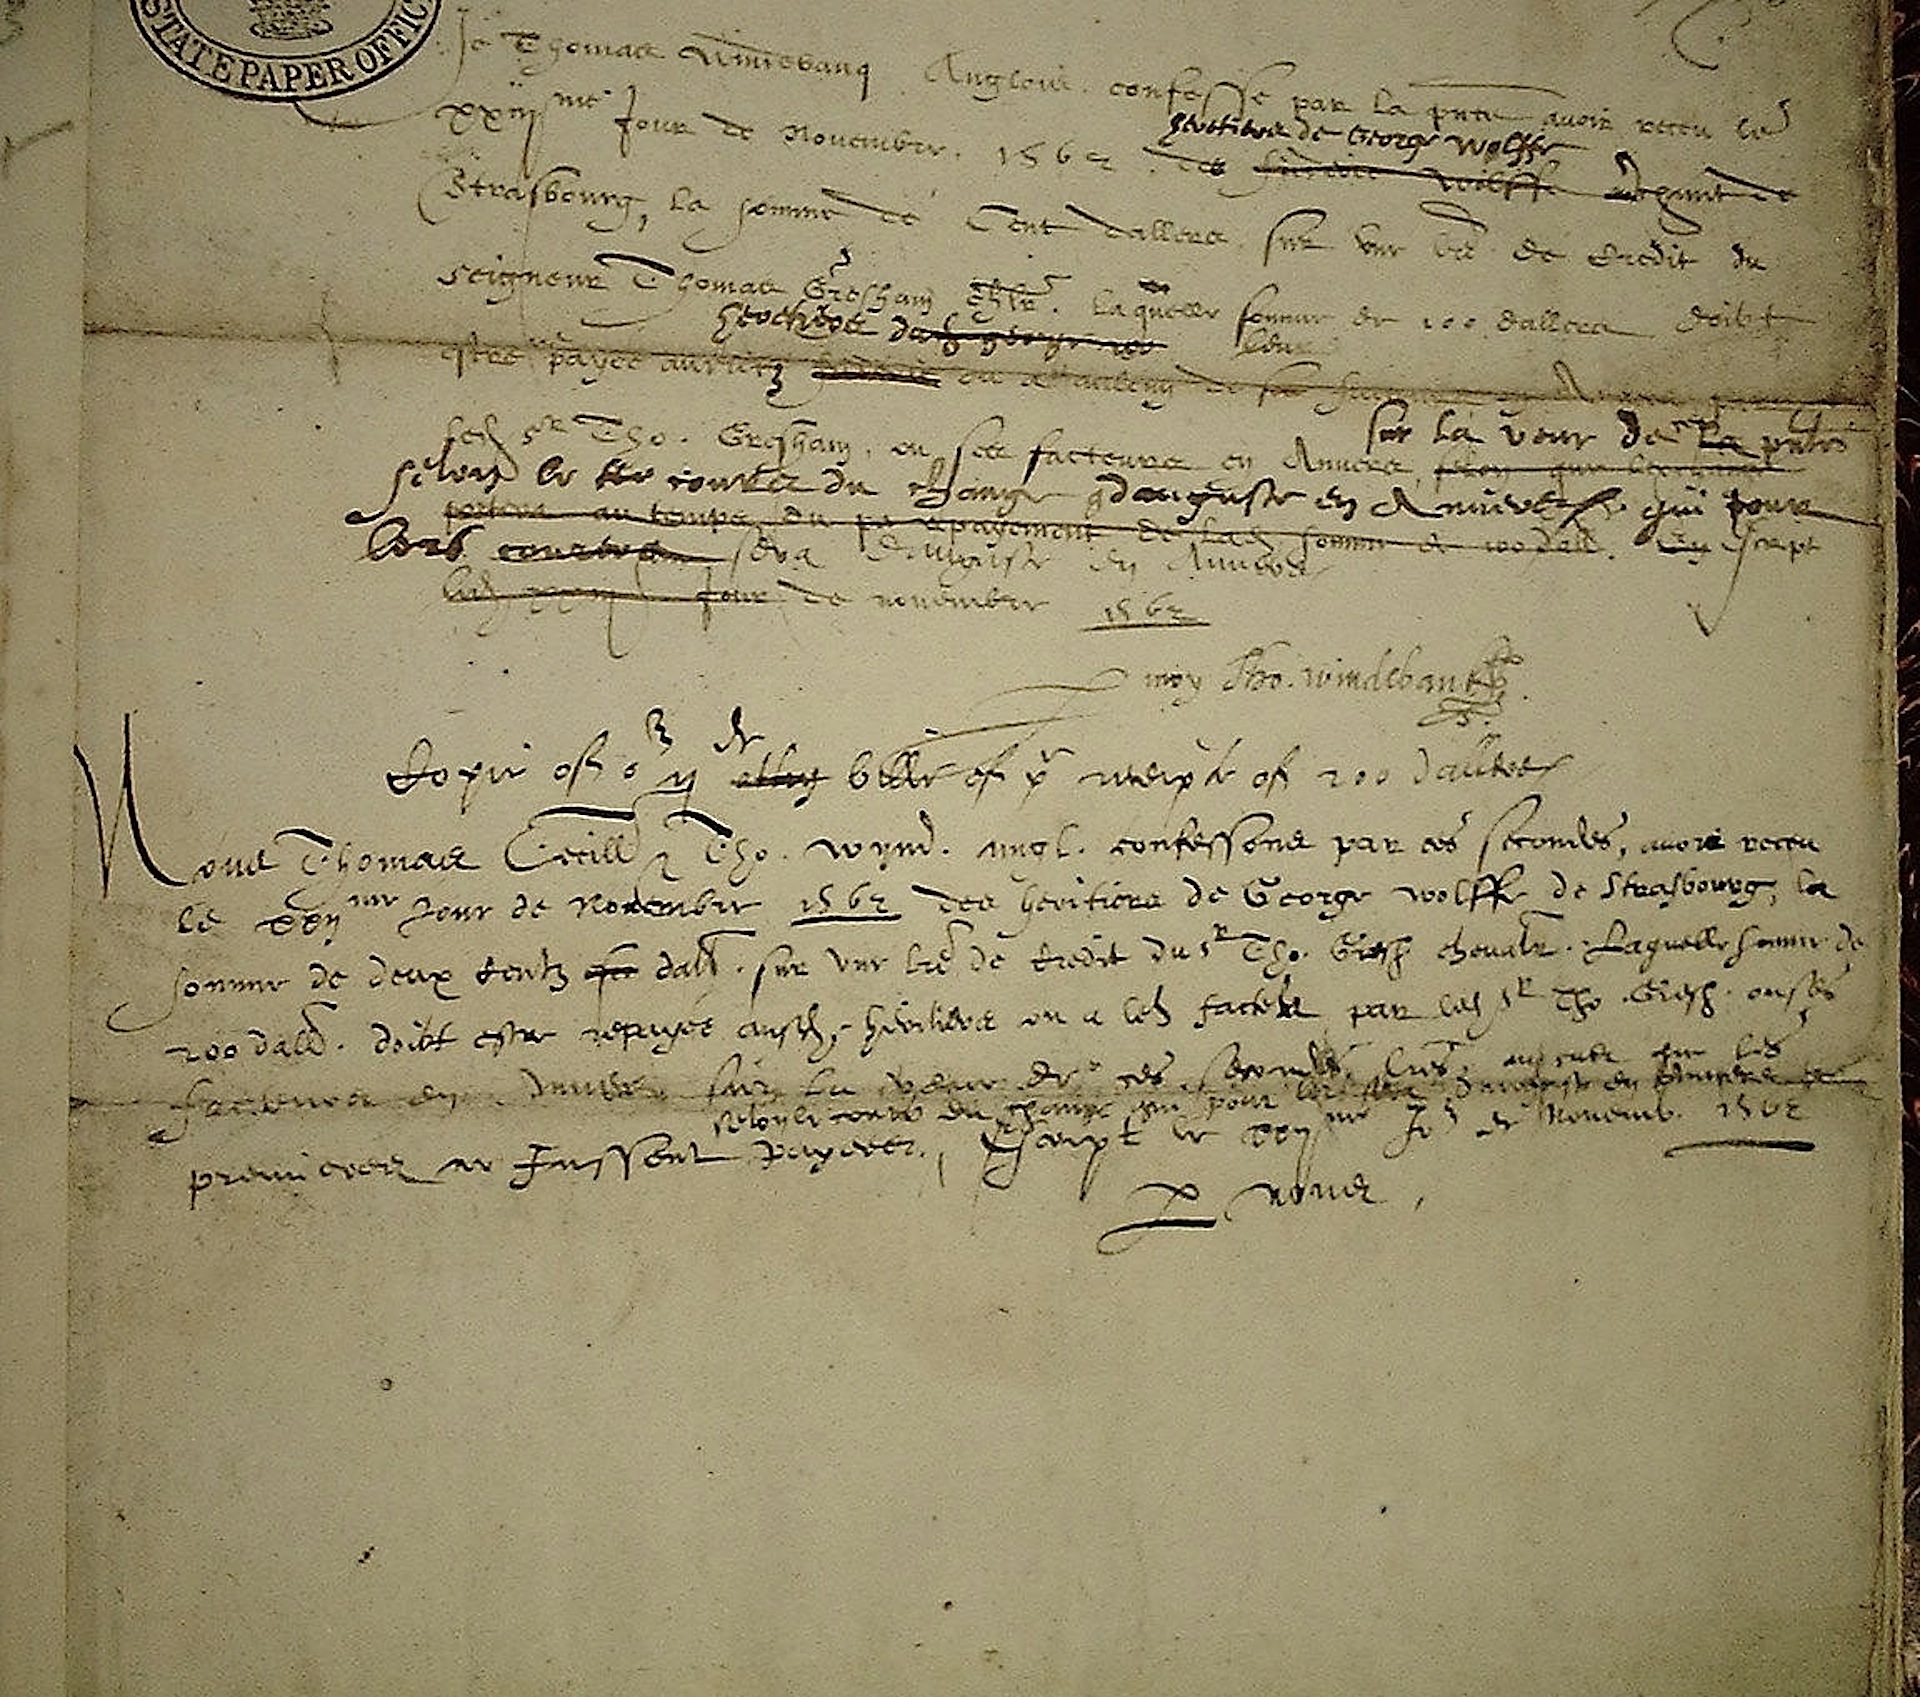 STATE PAPER OFFIC
Je Thomas Windebanq Anglois. confesse par la pnte avoir receu le
xxiij me Jour de November. 1562. des heritiers de George Wolffe
Strasbourg, la somme de Cent dallers. sur une lre de Credit du
seigneur Thomas Gresham chlr. laquelle somme de 100 dallers doibt
heritiers
estre payée ausditz ou a leur
led Sr Tho. Gresham, ou ses facteurs en Anvers, sur la veue de
selon le cours du change d'auguste en Anvers qui pour
lors sera d'auguste en Anvers
Jour de november 1562
moy Tho. windebank
Copie of ij bille of ye receipt of 200 dallers
Nous Thomas Cecill & Tho. Wynd. angl. confessons par ces secondes, avoir receu
le xxij me Jour de November 1562 des heritiers de George Wolffe de Strasbourg, la
somme de deux centz dall. sur une lre de Credit du Sr Tho. Gresh chevalr. Laquelle somme de
200 dall. doibt estre repayée ausd. heritiers ou a led facteur par led Sr Tho. Gresh. ou ses
facteurs en Anvers sur la veue de ces secondes lres, au cas que les
selon le cours du change qui pour lors sera d'auguste en Anvers
premieres ne fussent payees. Escript le xxij me Jor de Novemb. 1562
p nous